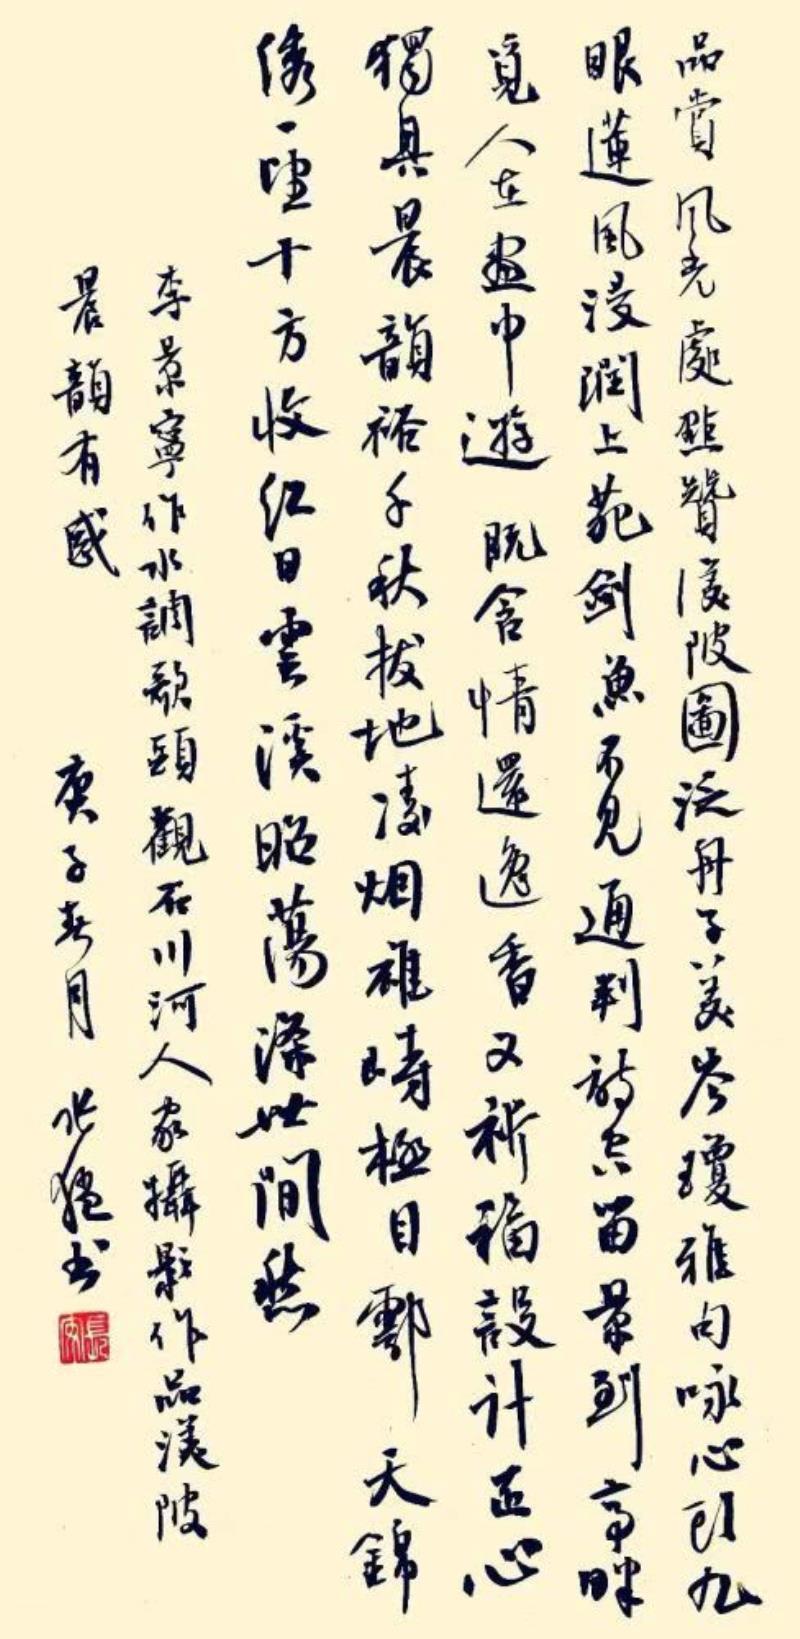 品賞風光處點贊渼陂圖泛舟子美岑瓊雅句咏心頭九
眼蓮風浸潤上苑劍魚不見通判詩空留景到亭畔
覓人在畫中遊既含情還逸香又祈福設計匠心
獨具晨韻裕千秋拔地凌烟雄峙極目鄠天錦
綉一望十方收紅日雲溪照蕩滌世間愁
李景寧作水調歌頭觀石川河人家攝影作品渼陂
晨韻有感 庚子春月 書